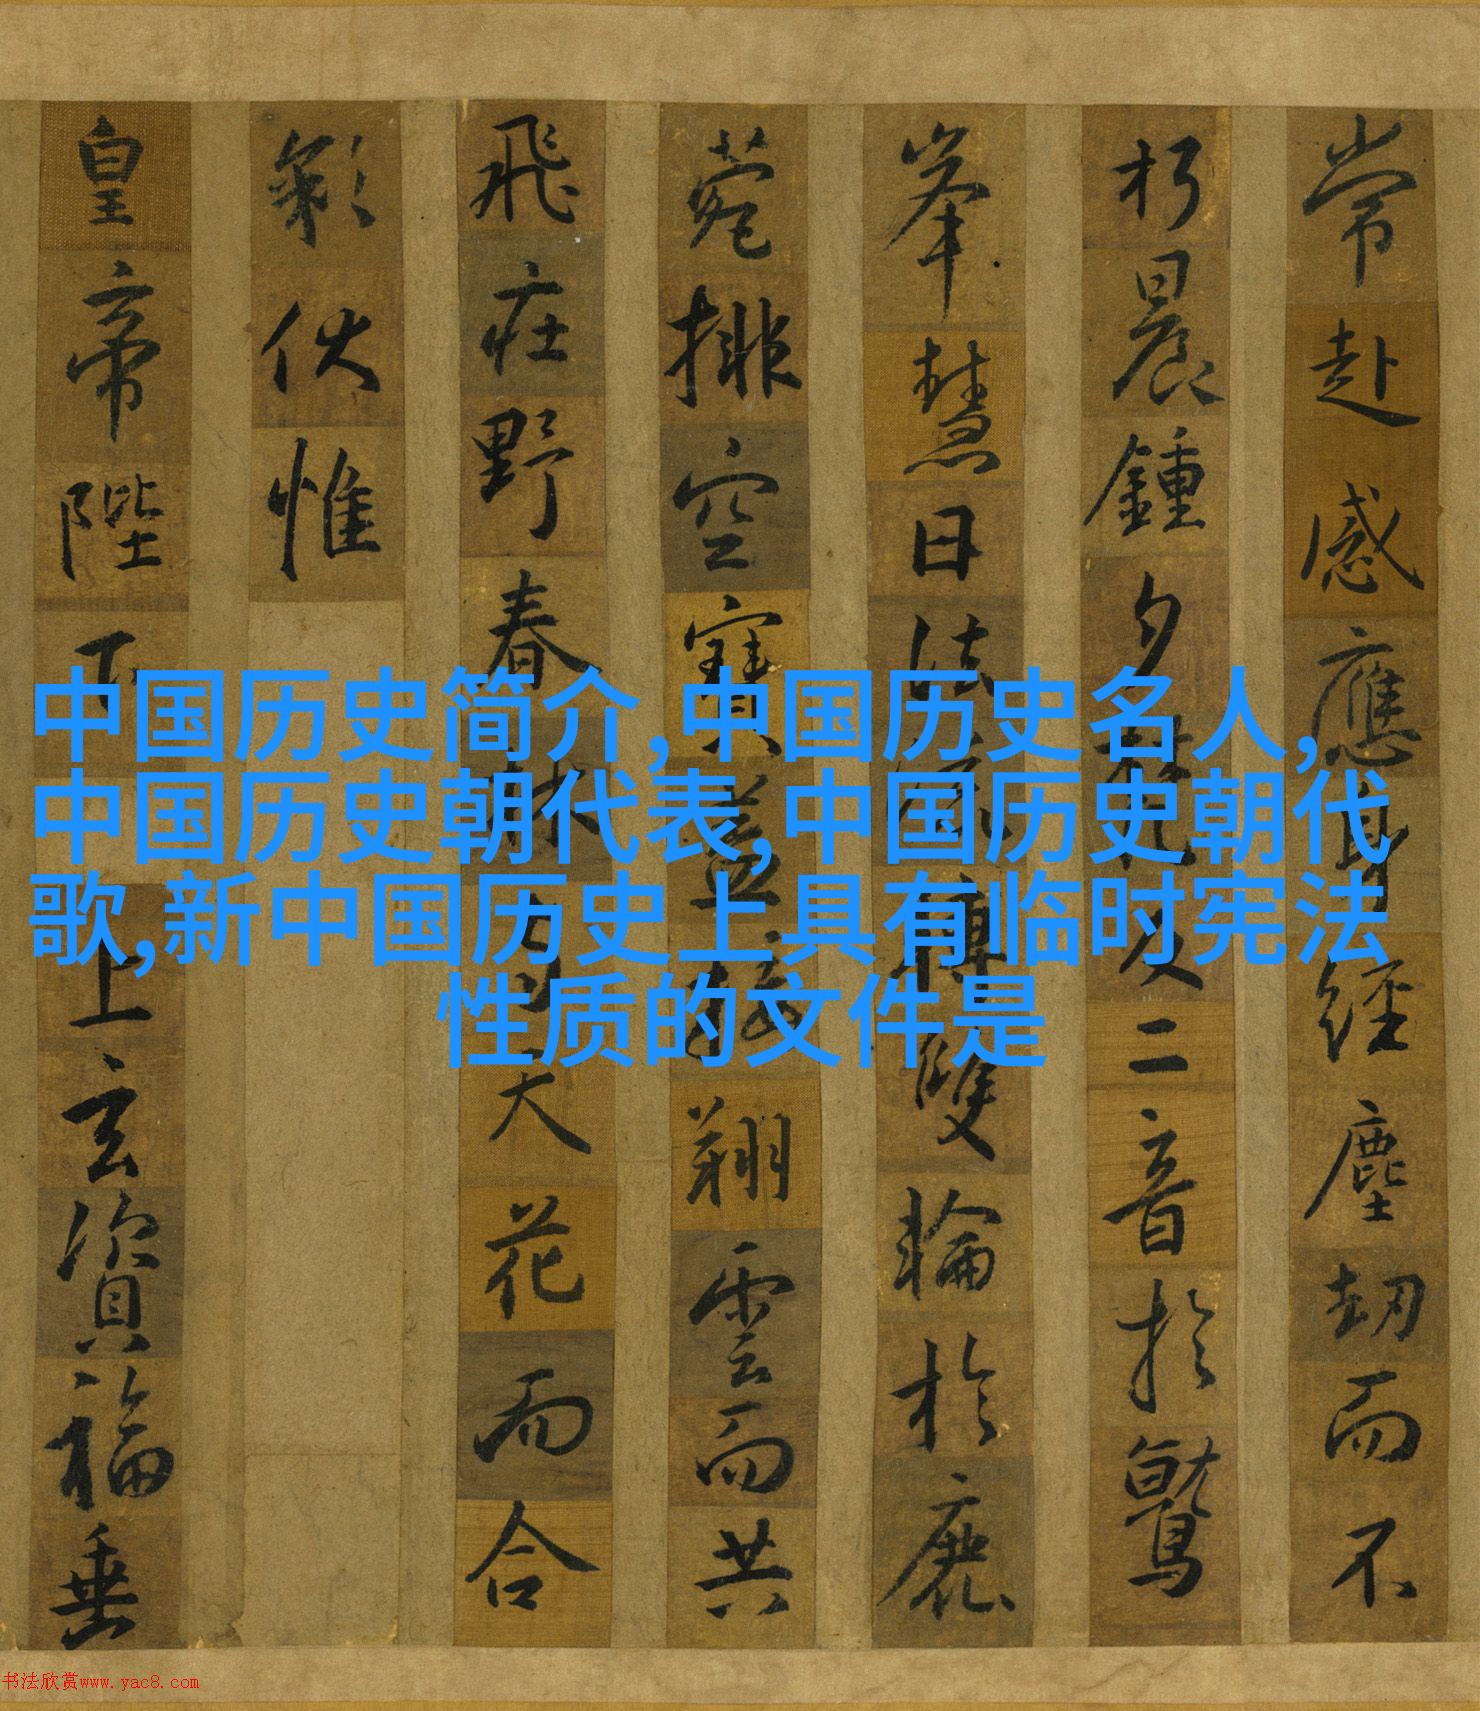 中国历史简介,中国历史名人,
中国历史朝代表,中国历史朝代
歌,新中国历史上具有临时宪法
性质的文件是
常赴感應身經塵劫而不
朽晨鍾夕梵交二音於鷲
峯慧日法流轉雙輪於鹿
菀排空寶蓋接翔雲而共
飛莊野春林與天花而合
彩伏惟
皇帝陛下上玄資福垂
书法欣赏www.yac8.com